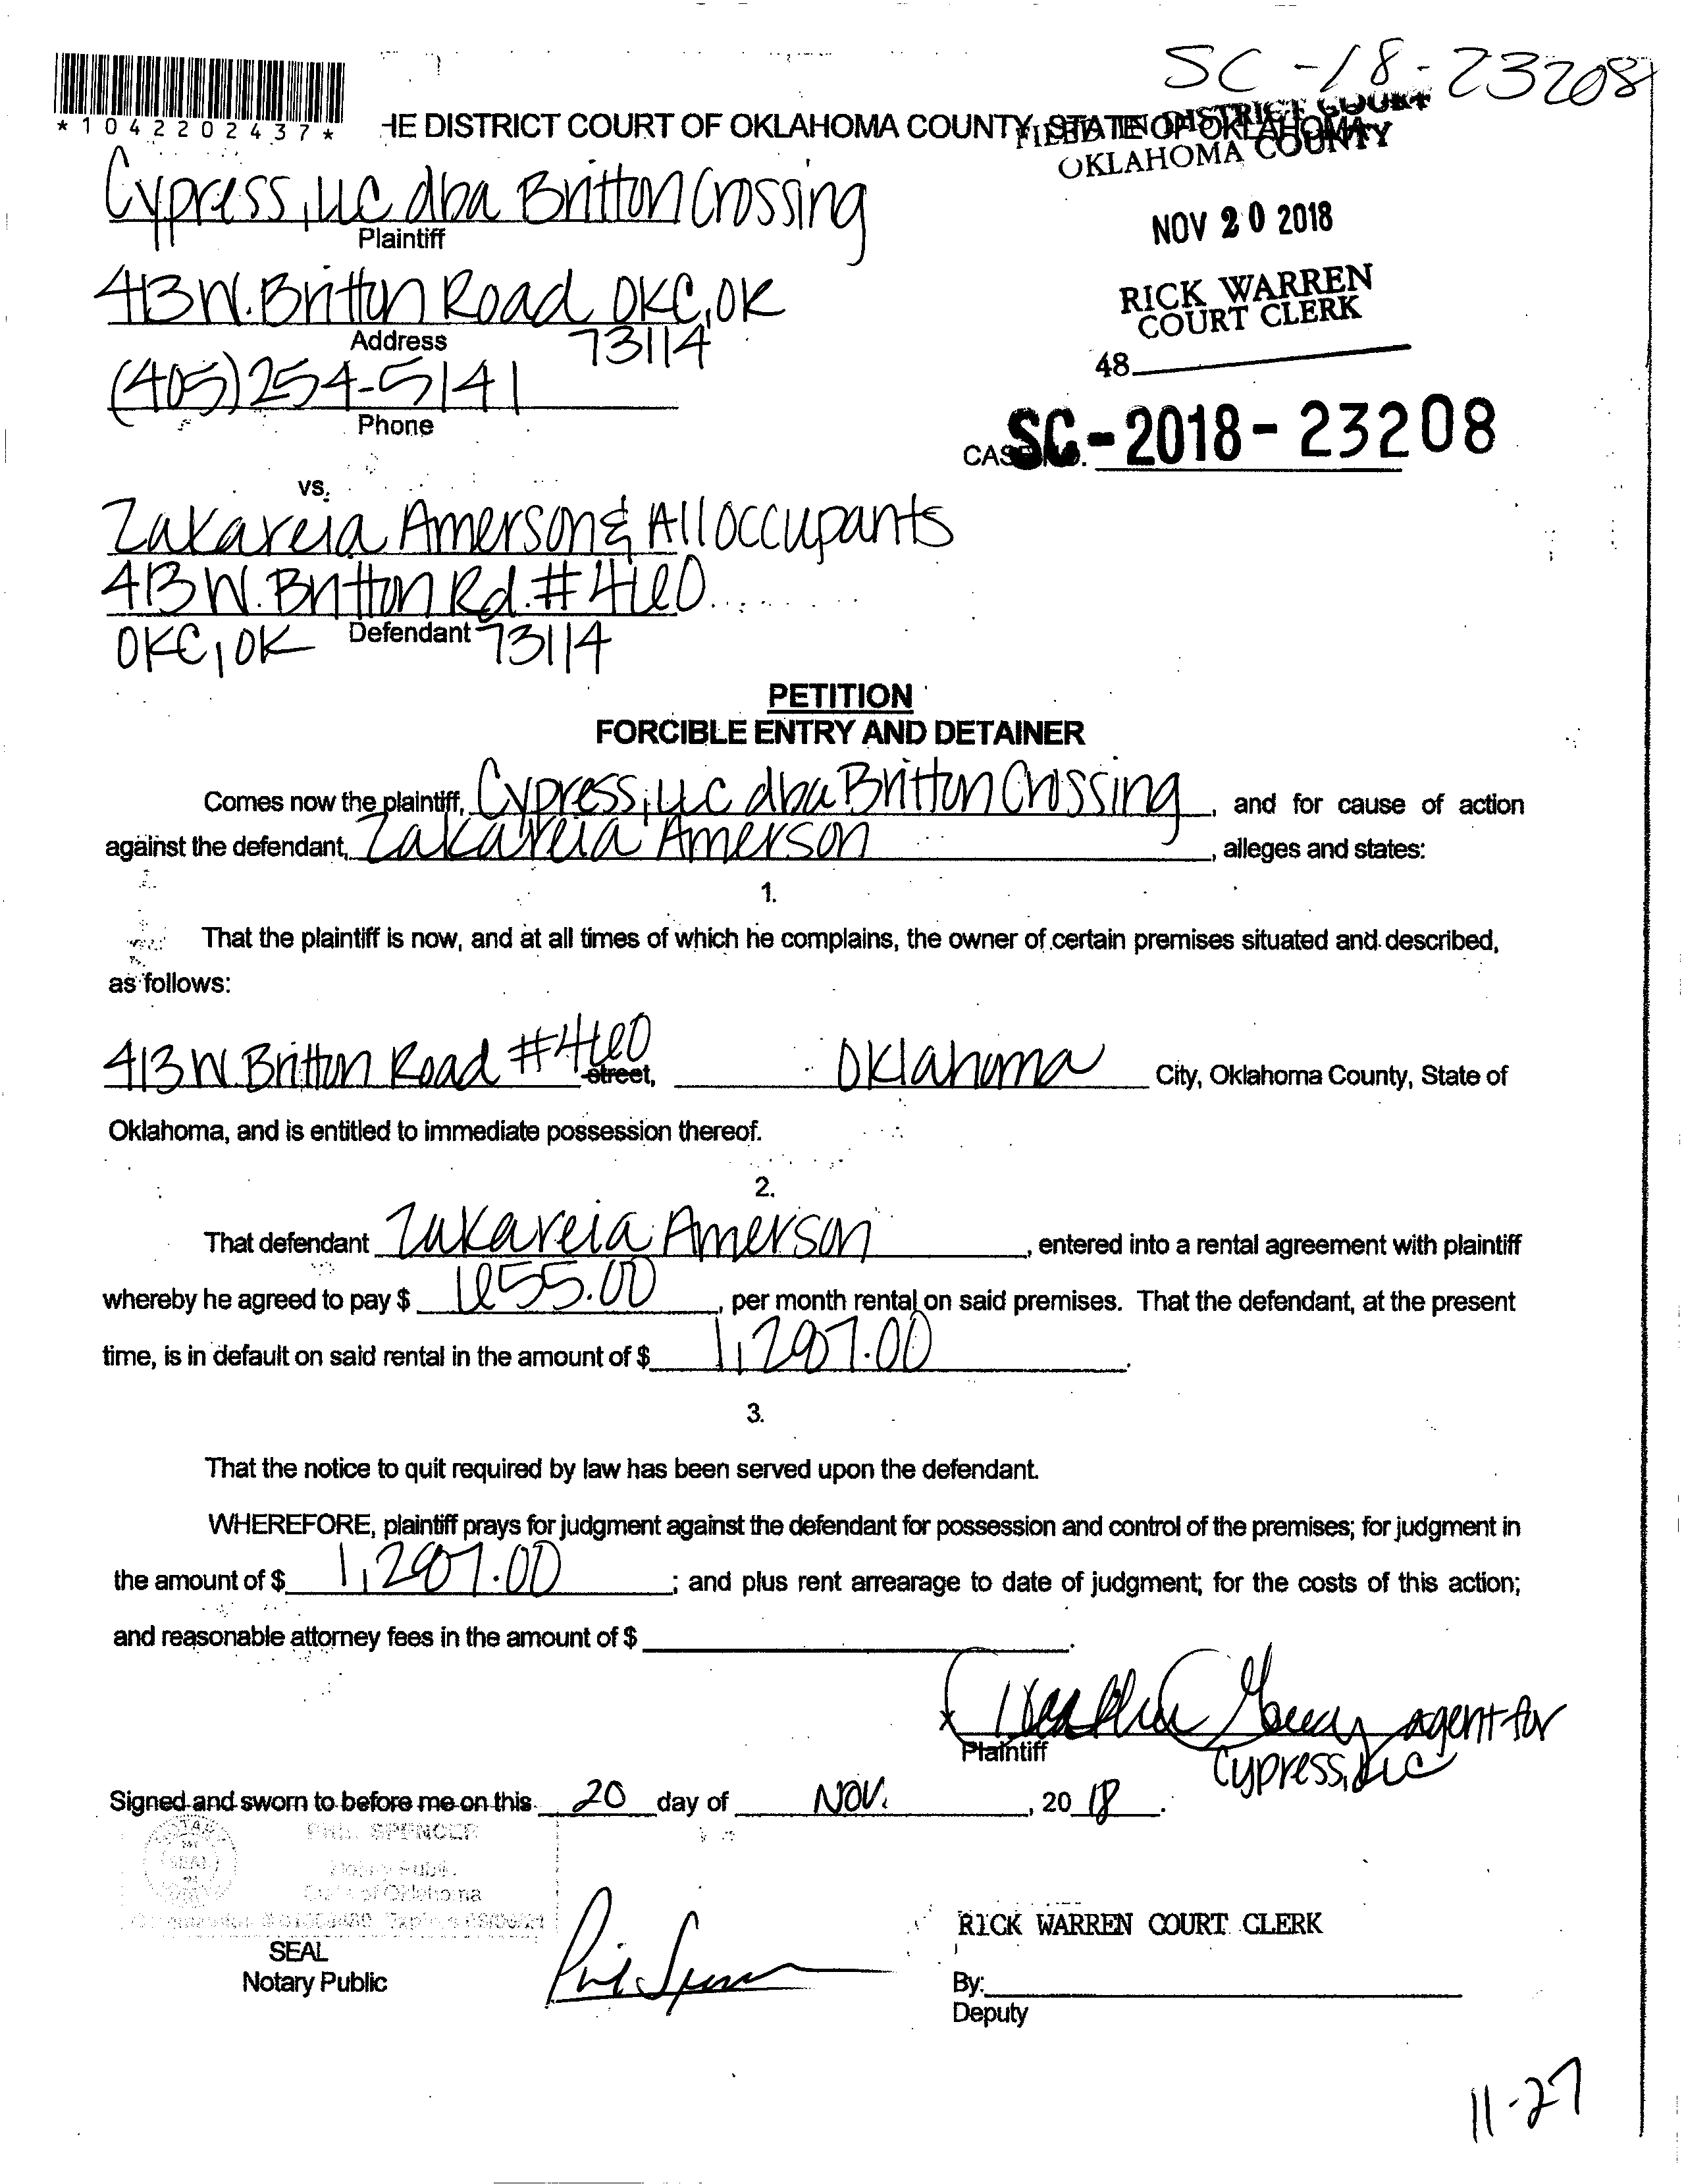 SC-18-23208
*1042202437*
HE DISTRICT COURT OF OKLAHOMA COUNTY, STATE OF OKLAHOMA
FILED IN DISTRICT COURT
OKLAHOMA COUNTY
Cypress, LLC dba Britton Crossing
Plaintiff
NOV 20 2018
413 W. Britton Road OKC, OK
Address 73114
RICK WARREN
COURT CLERK
48
(405) 254-5141
Phone
CASE NO. SC-2018-23208
vs.
Zakareia Amerson & All occupants
413 W. Britton Rd. #460
Defendant
OKC, OK 73114
PETITION
FORCIBLE ENTRY AND DETAINER
Comes now the plaintiff, Cypress, LLC dba Britton Crossing, and for cause of action
against the defendant, Zakareia Amerson, alleges and states:
1.
That the plaintiff is now, and at all times of which he complains, the owner of certain premises situated and described,
as follows:
413 W. Britton Road #460 street, Oklahoma City, Oklahoma County, State of
Oklahoma, and is entitled to immediate possession thereof.
2.
That defendant Zakareia Amerson, entered into a rental agreement with plaintiff
whereby he agreed to pay $ 655.00, per month rental on said premises. That the defendant, at the present
time, is in default on said rental in the amount of $ 1,297.00.
3.
That the notice to quit required by law has been served upon the defendant.
WHEREFORE, plaintiff prays for judgment against the defendant for possession and control of the premises; for judgment in
the amount of $ 1,297.00; and plus rent arrearage to date of judgment; for the costs of this action;
and reasonable attorney fees in the amount of $
agent for
Plaintiff
Cypress, LLC
Signed and sworn to before me on this 20 day of Nov., 2018.
PHIL SPENCER
Notary Public
State of Oklahoma
SEAL
Notary Public
Phil Spencer
RICK WARREN COURT CLERK
By:
Deputy
11-27